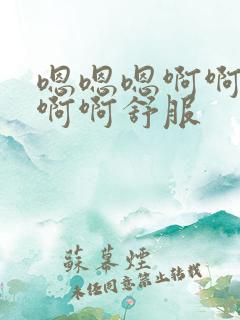 嗯嗯嗯啊啊
啊啊舒服
蘇幕煙
未经同意禁止转载